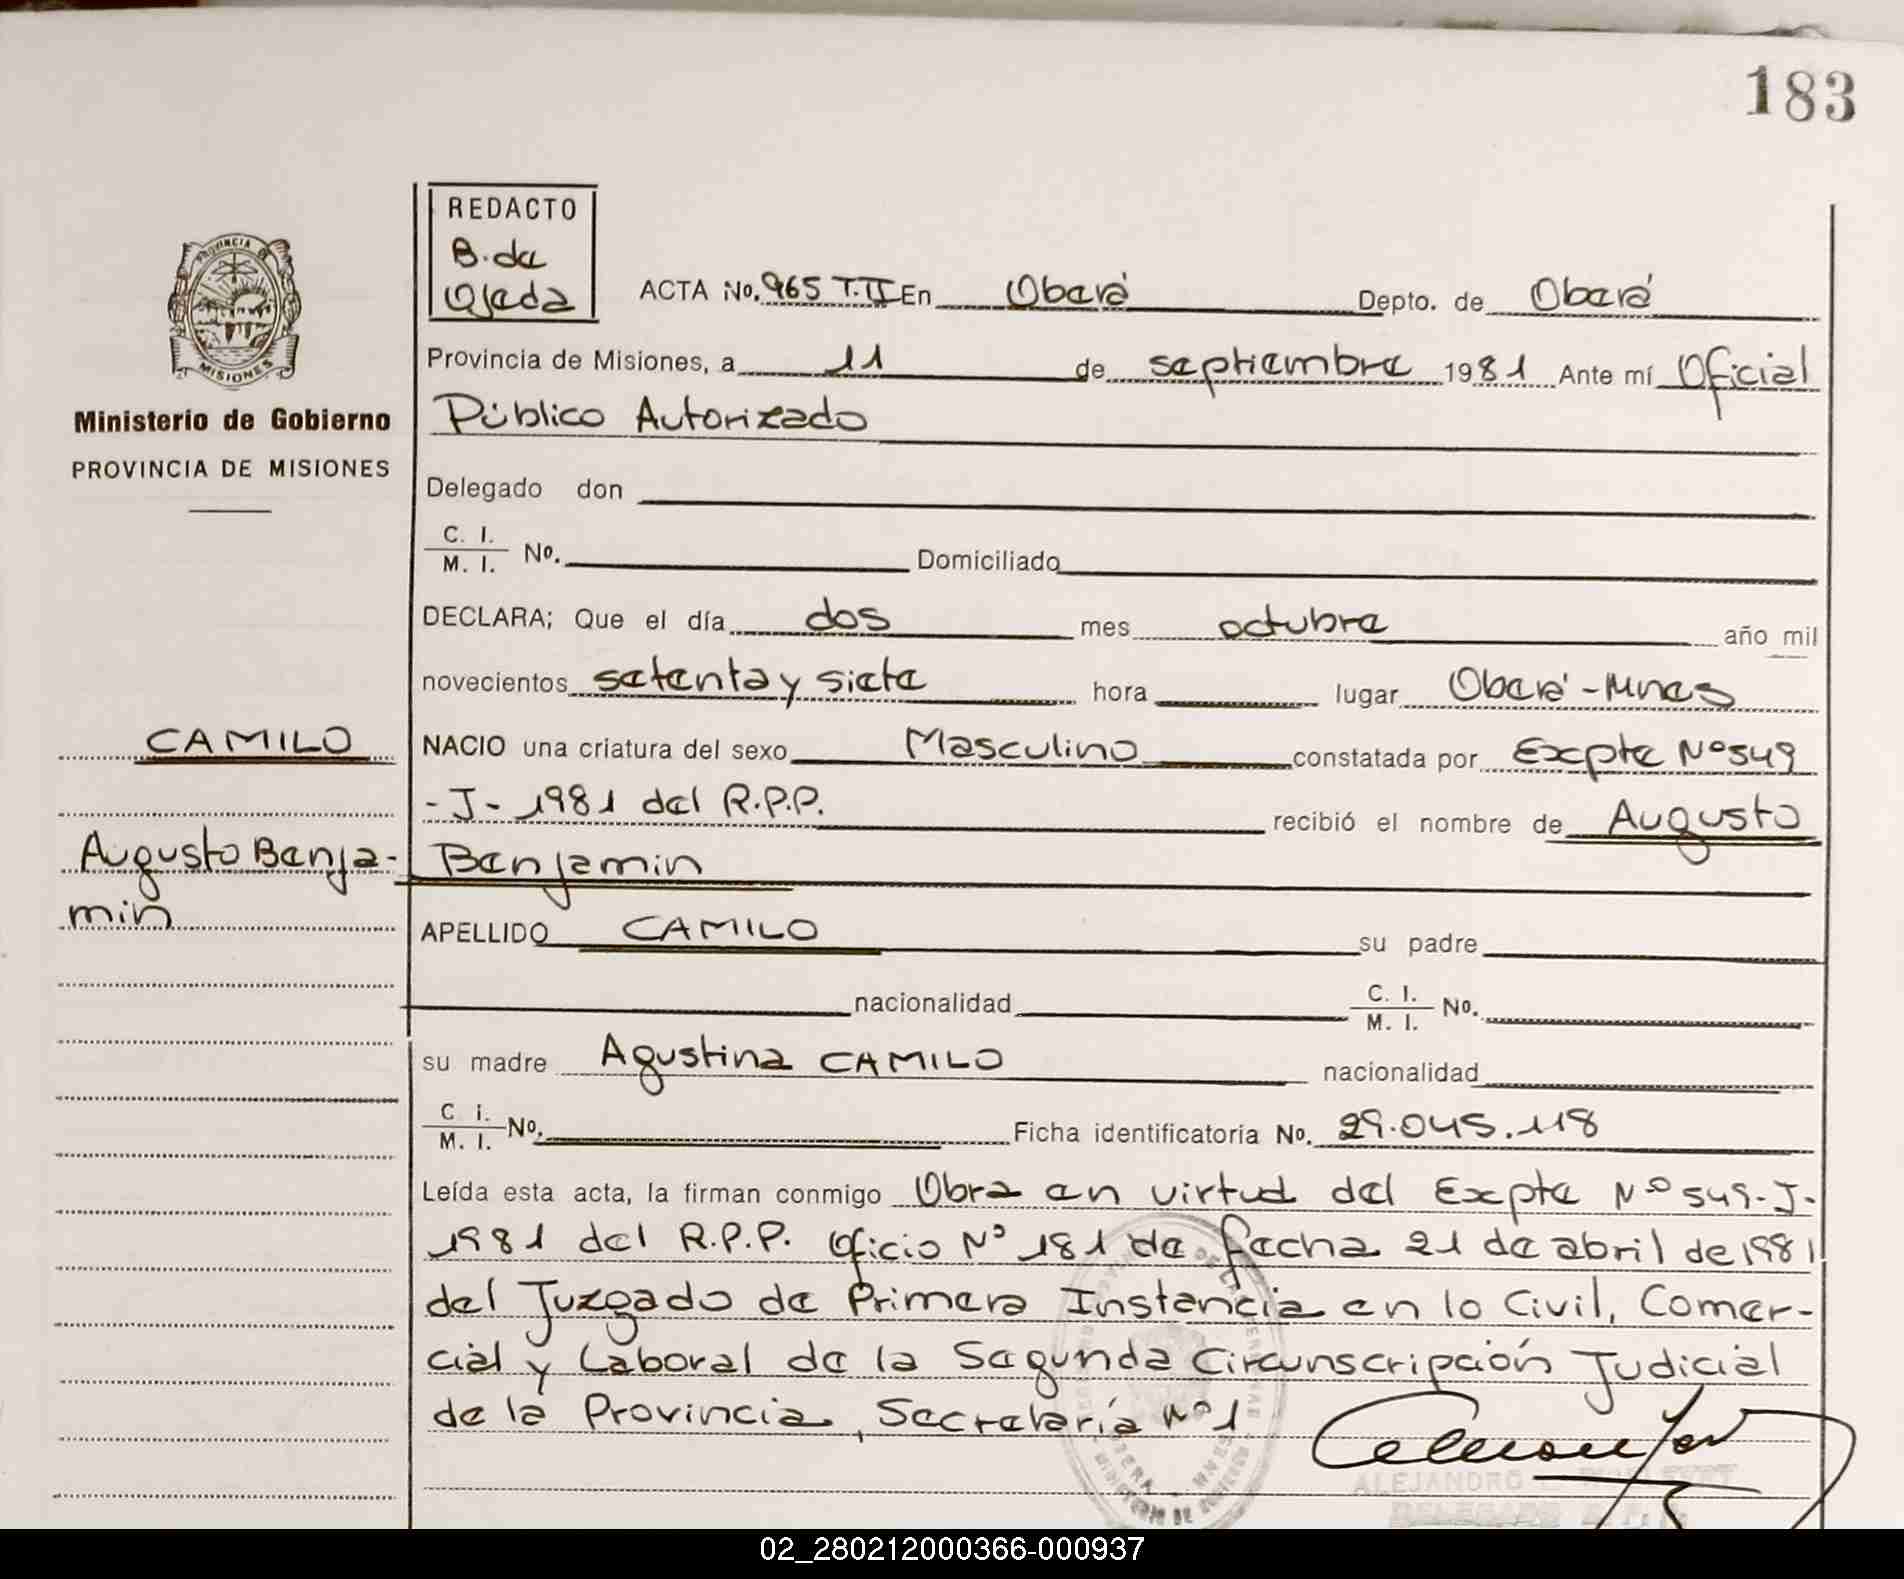 183
REDACTO
B. de
Ojeda
PROVINCIA DE
MISIONES
Ministerio de Gobierno
PROVINCIA DE MISIONES
ACTA No. 965 T.II En Oberá Depto. de Oberá
Provincia de Misiones, a 11 de septiembre 1981 Ante mí Oficial
Público Autorizado
Delegado don
C. I.
M. I. No. Domiciliado
DECLARA; Que el día dos mes octubre año mil
novecientos setenta y siete hora lugar Oberá - Mnes
CAMILO
NACIO una criatura del sexo Masculino constatada por Expte Nº 549
- J - 1981 del R.P.P. recibió el nombre de Augusto
Augusto Benja-
min
Benjamin
APELLIDO CAMILO su padre
nacionalidad C. I.
M. I. No.
su madre Agustina CAMILO nacionalidad
C i.
M. I. No. Ficha identificatoria No. 29.045.118
Leída esta acta, la firman conmigo Obra en virtud del Expte Nº 549-J-
1981 del R.P.P. Oficio Nº 181 de fecha 21 de abril de 1981
del Juzgado de Primera Instancia en lo Civil, Comer-
cial y Laboral de la Segunda Circunscripción Judicial
de la Provincia, Secretaría Nº 1
ALEJANDRO
DELEGADO
02_280212000366-000937